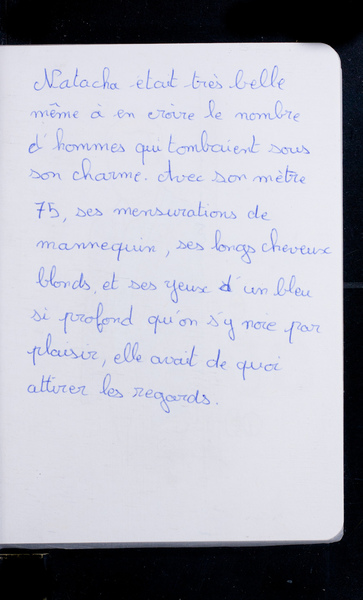 Natacha etait très belle
même à en croire le nombre
d'hommes qui tombaient sous
son charme. Avec son mètre
75, ses mensurations de
mannequin, ses longs cheveux
blonds, et ses yeux d'un bleu
si profond qu'on s'y noie par
plaisir, elle avait de quoi
attirer les regards.